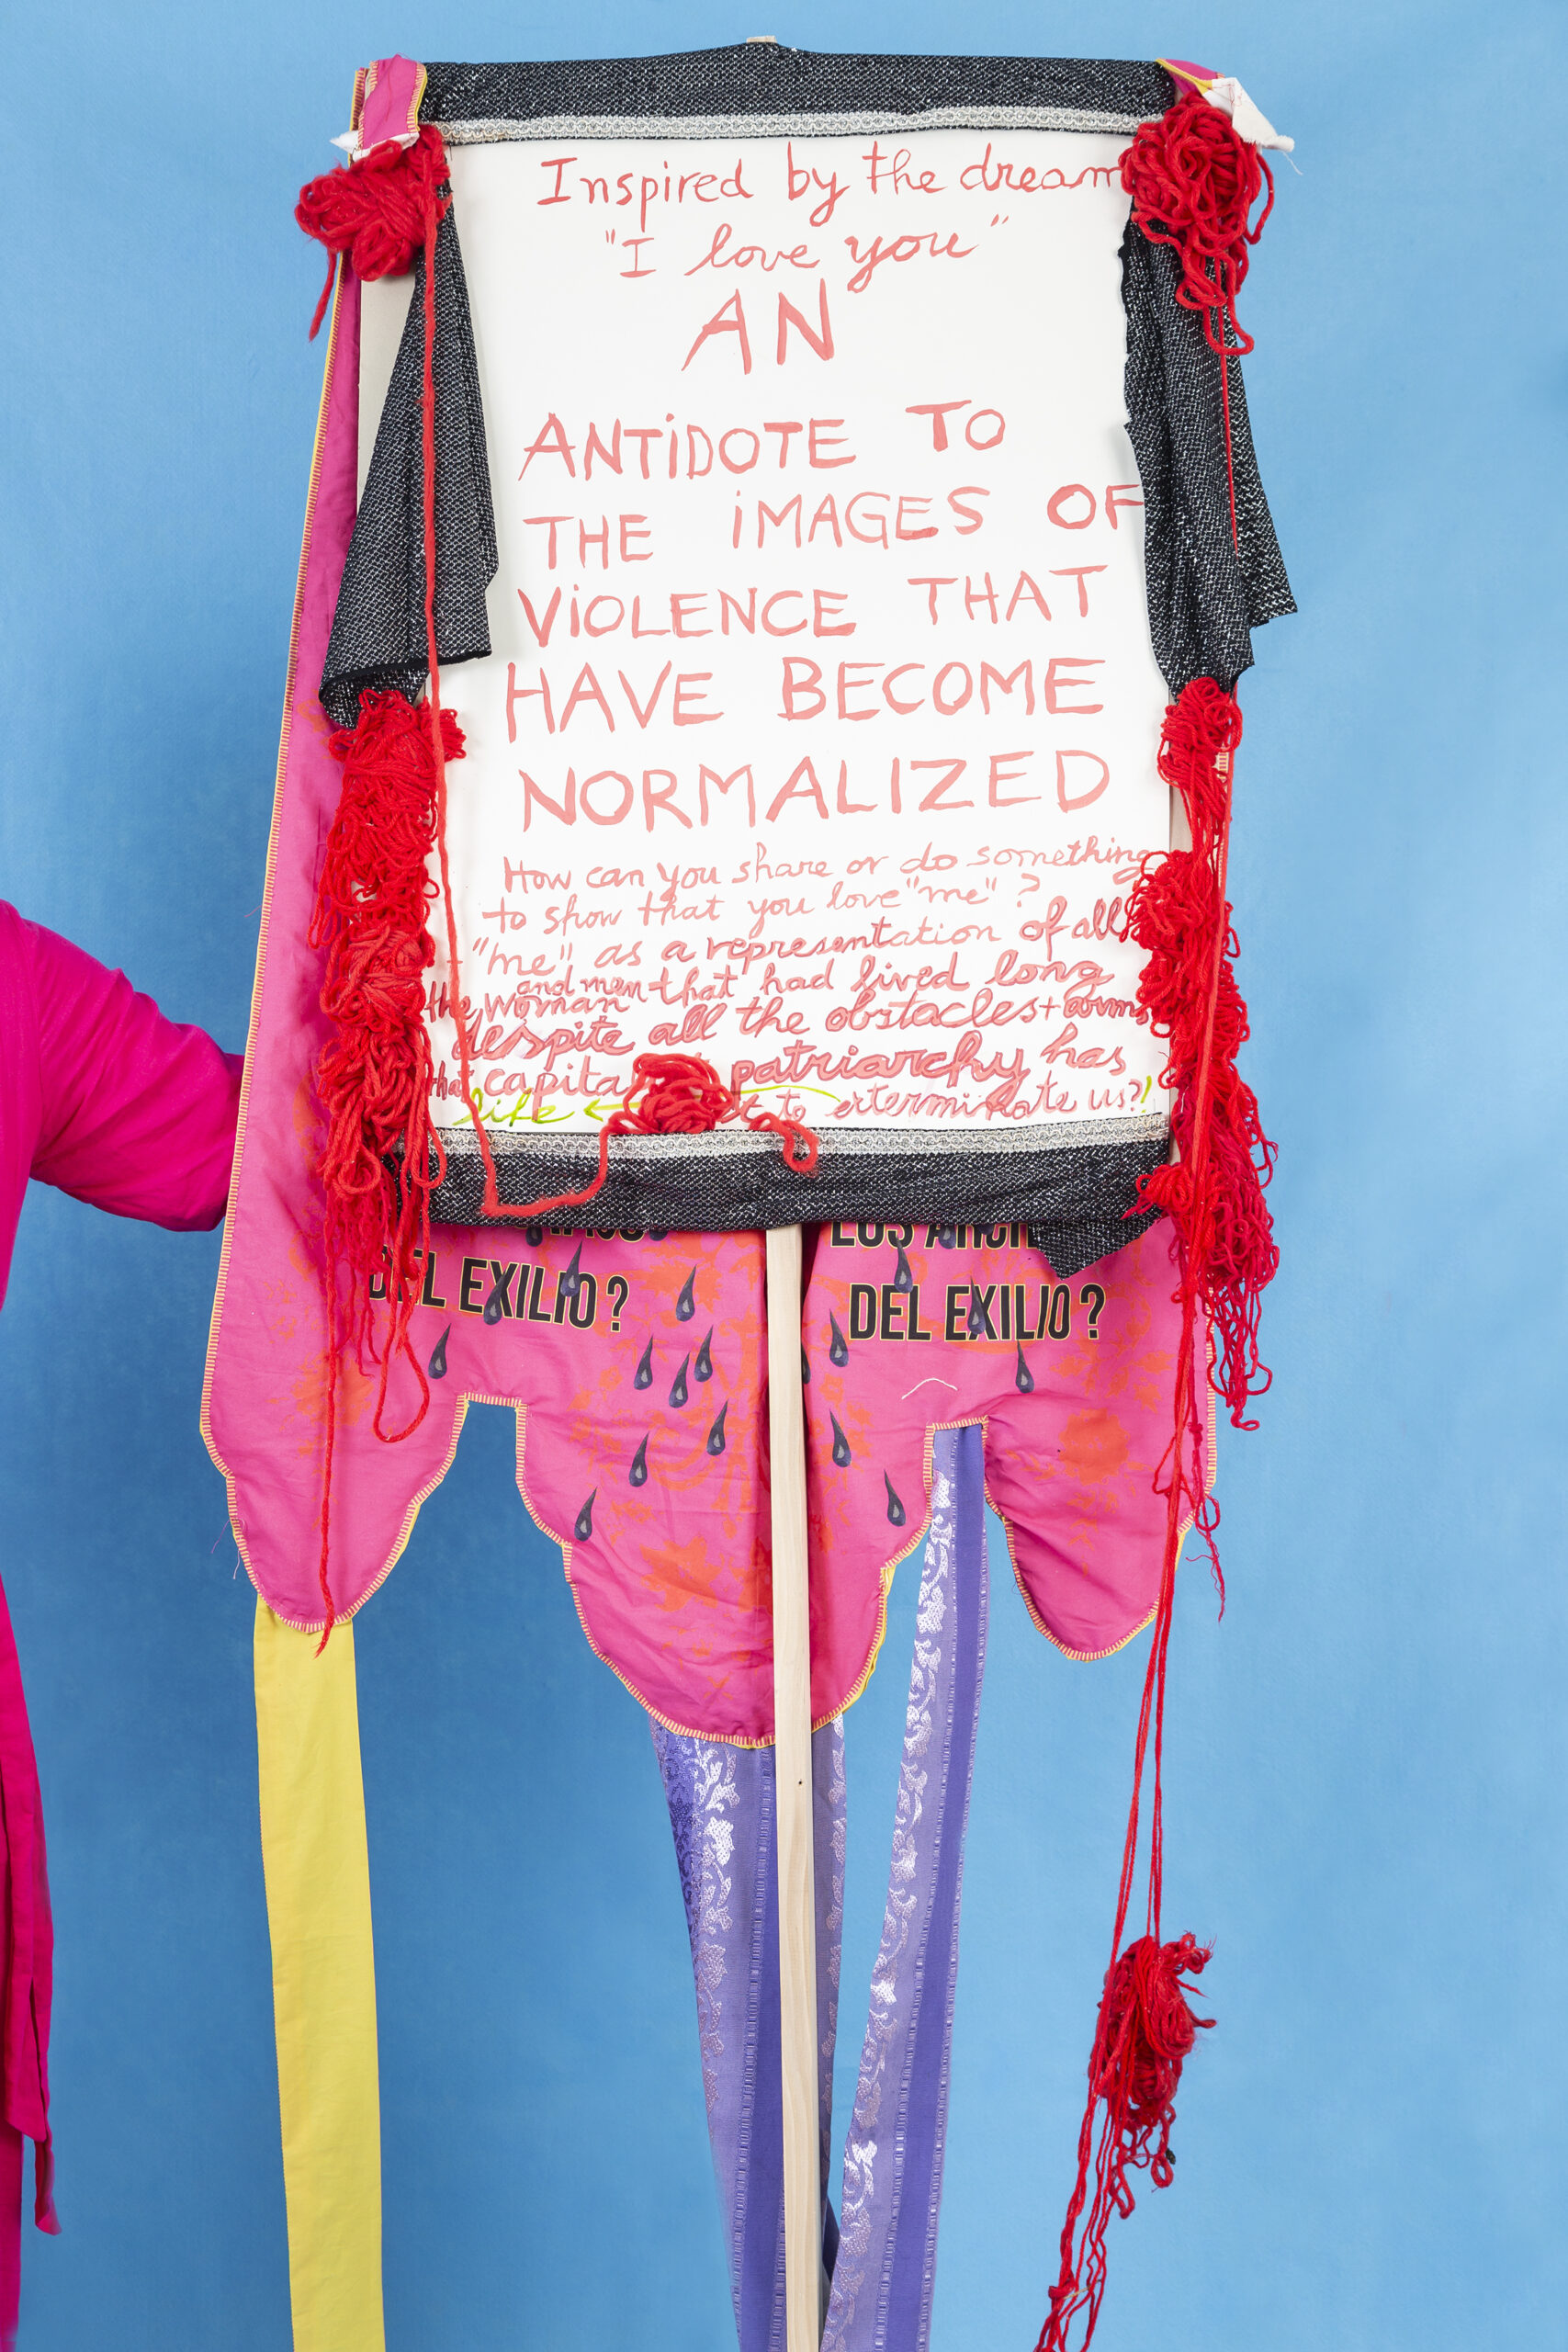 Inspired by the dream
"I love you"
AN
ANTIDOTE TO
THE IMAGES OF
VIOLENCE THAT
HAVE BECOME
NORMALIZED
How can you share or do something
to show that you love "me" ?
- "me" as a representation of all
and men
the woman that had lived long
despite all the obstacles + arms
that capita patriarchy has
life ← to exterminate us?!
LOS
DEL EXILIO?
DEL EXILIO?